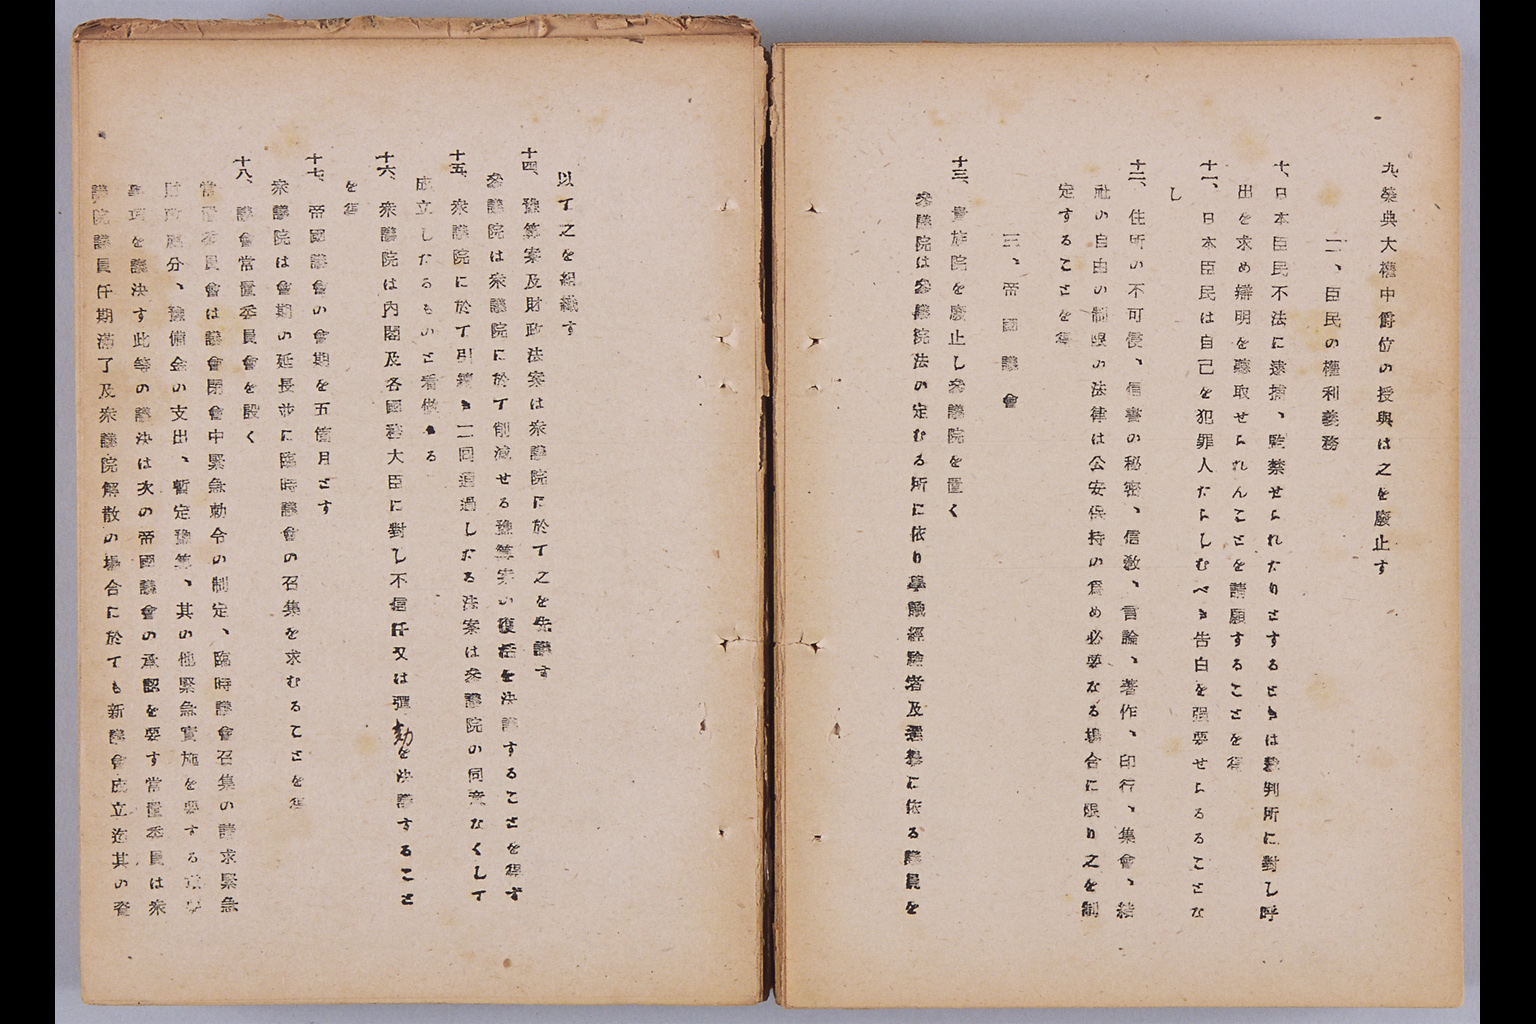 九、榮典大權中爵位の授與は之を廢止す
二、臣民の權利義務
十、日本臣民不法に逮捕、監禁せられたりとするときは裁判所に對し呼
出を求め辯明を聽取せられんことを請願することを得
十一、日本臣民は自己を犯罪人たらしむべき告白を强要せらるることな
し
十二、住所の不可侵、信書の秘密、信敎、言論、著作、印行、集會、結
社の自由の制限の法律は公安保持の爲め必要なる場合に限り之を制
定することを得
三、帝國議會
十三、貴族院を廢止し參議院を置く
參議院は參議院法の定むる所に依り學識經驗者及選擧に依る議員を
以て之を組織す
十四、豫算案及財政法案は衆議院に於て之を先議す
參議院は衆議院に於て削減せる豫算案の復活を決議することを得ず
十五、衆議院に於て引續き二回通過したる法案は參議院の同意なくして
成立したるものと看做さる
十六、衆議院は內閣及各國務大臣に對し不信任又は彈劾を決議すること
を得
十七、帝國議會の會期を五箇月とす
衆議院は會期の延長並に臨時議會の召集を求むることを得
十八、議會常置委員會を設く
常置委員會は議會閉會中緊急勅令の制定、臨時議會召集の請求緊急
財政處分、豫備金の支出、暫定豫算、其の他緊急實施を要する
事項を議決す此等の議決は次の帝國議會の承認を要す常置委員は衆
議院議員任期滿了及衆議院解散の場合に於ても新議會成立迄其の資